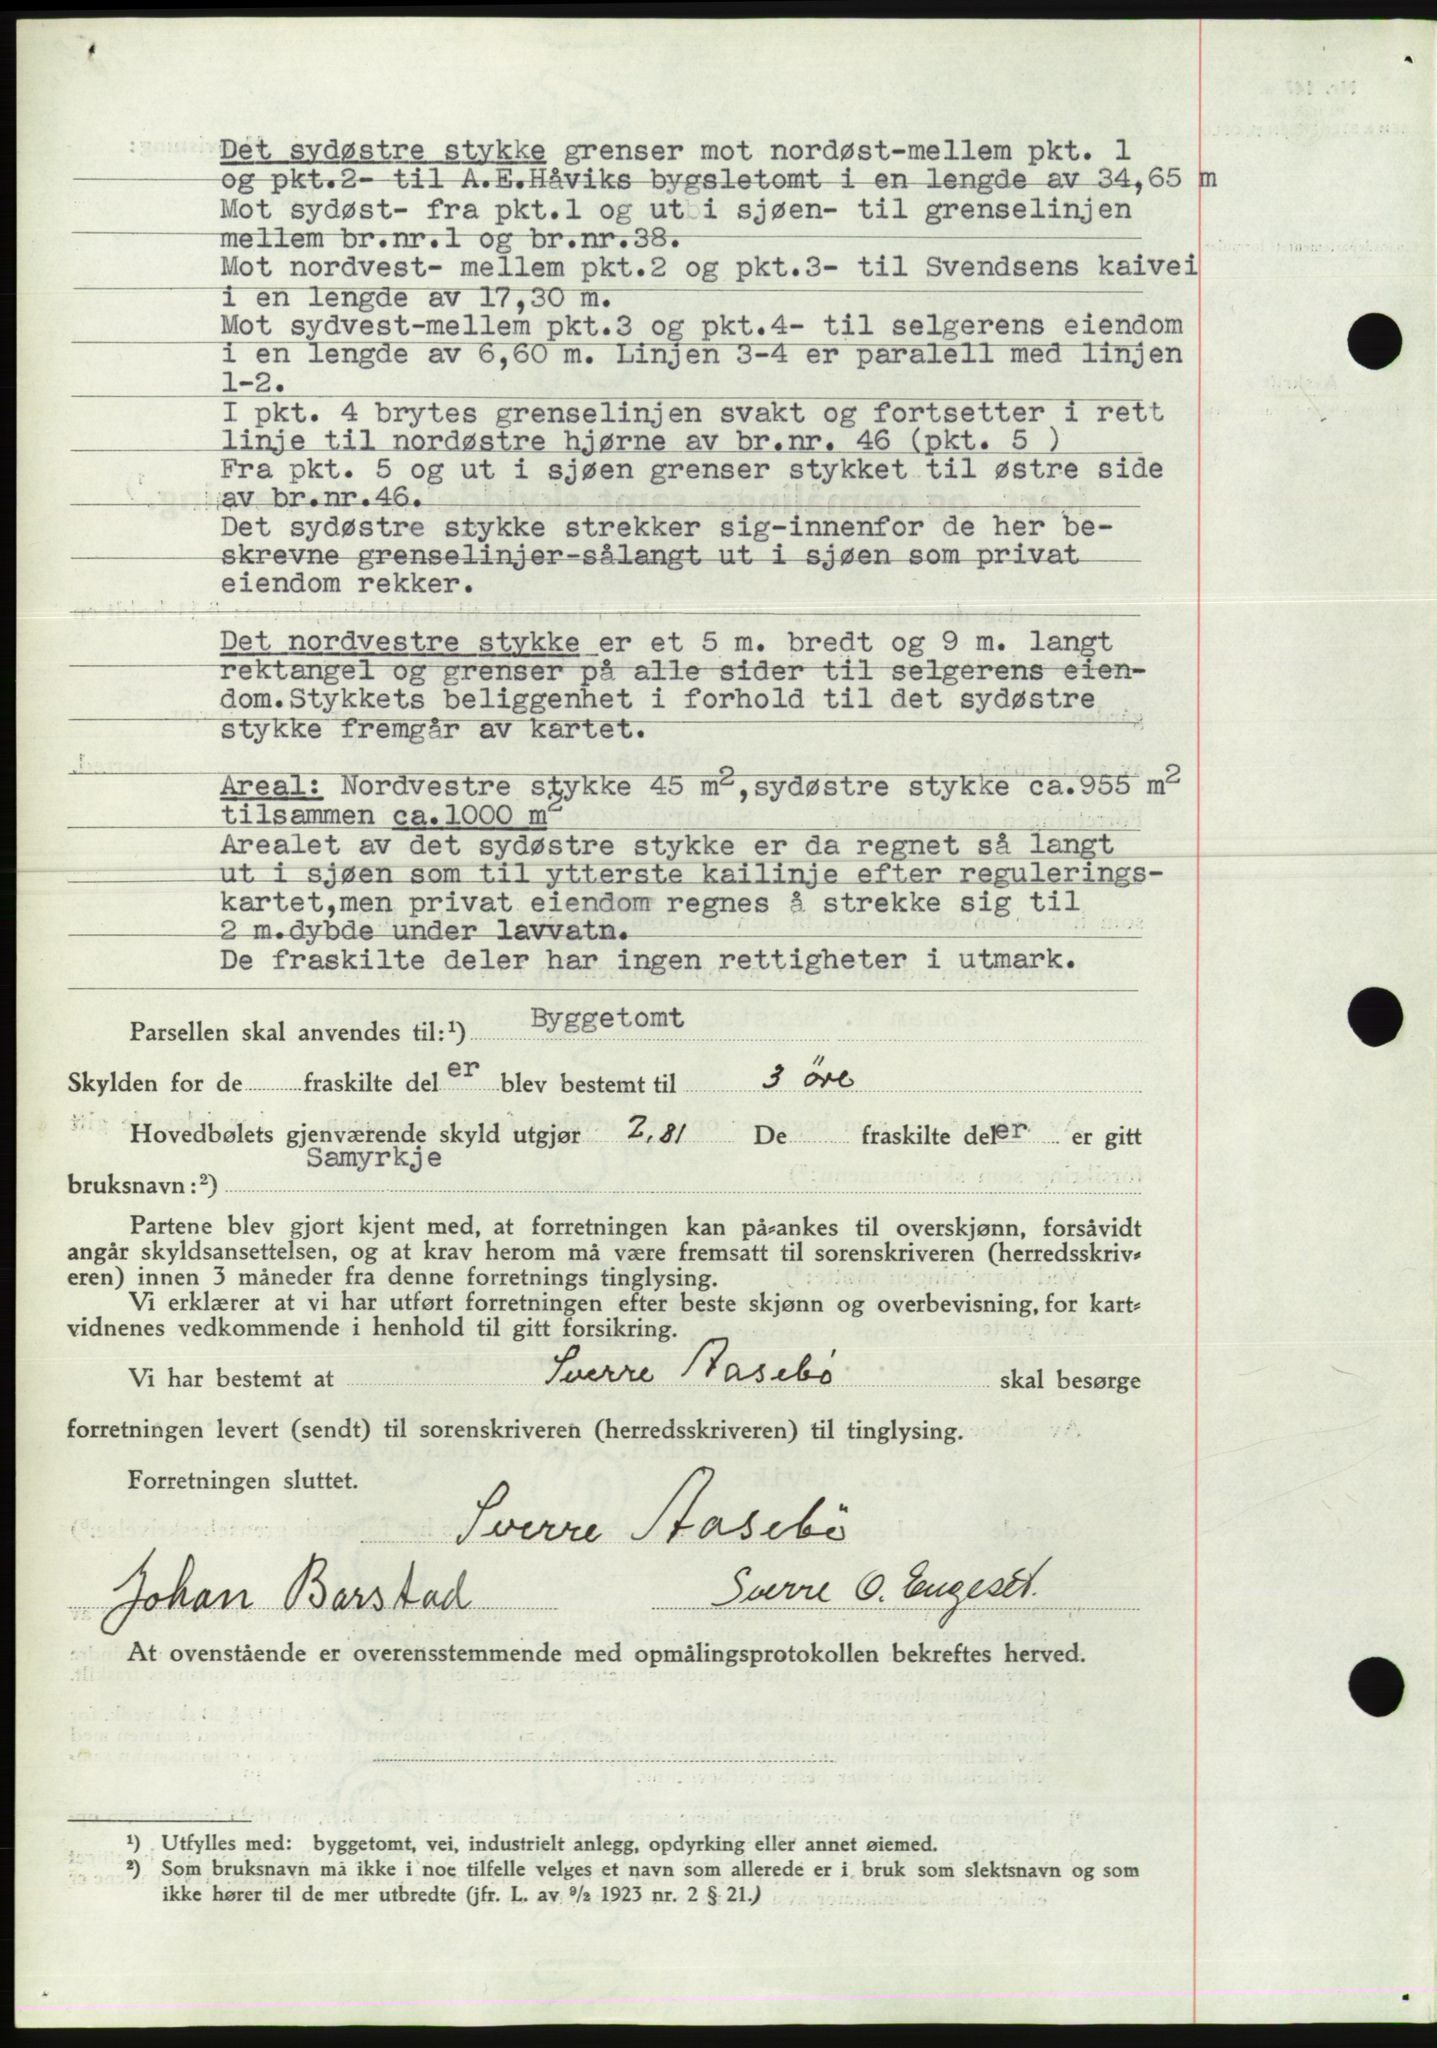 Det sydøstre stykke grenser mot nordøst-mellem pkt. 1
og pkt.2- til A.E.Håviks bygsletomt i en lengde av 34,65 m
Mot sydøst- fra pkt.1 og ut i sjøen- til grenselinjen
mellem br.nr.1 og br.nr.38.
Mot nordvest- mellem pkt.2 og pkt.3- til Svendsens kaivei
i en lengde av 17,30 m.
Mot sydvest-mellem pkt.3 og pkt.4- til selgerens eiendom
i en lengde av 6,60 m. Linjen 3-4 er paralell med linjen
1-2.
I pkt. 4 brytes grenselinjen svakt og fortsetter i rett
linje til nordøstre hjørne av br.nr. 46 (pkt. 5 )
Fra pkt. 5 og ut i sjøen grenser stykket til østre side
av br.nr.46.
Det sydøstre stykke strekker sig-innenfor de her be-
skrevne grenselinjer-sålangt ut i sjøen som privat
eiendom rekker.
Det nordvestre stykke er et 5 m. bredt og 9 m. langt
rektangel og grenser på alle sider til selgerens eien-
dom.Stykkets beliggenhet i forhold til det sydøstre
stykke fremgår av kartet.
Areal: Nordvestre stykke 45 m²,sydøstre stykke ca.955 m²
tilsammen ca.1000 m²
Arealet av det sydøstre stykke er da regnet så langt
ut i sjøen som til ytterste kailinje efter regulerings-
kartet,men privat eiendom regnes å strekke sig til
2 m.dybde under lavvatn.
De fraskilte deler har ingen rettigheter i utmark.
Parsellen skal anvendes til:¹) Byggetomt
Skylden for de fraskilte del er blev bestemt til 3 öre
Hovedbølets gjenværende skyld utgjør 2,81 De fraskilte deler er gitt
Samyrkje
bruksnavn:²)
Partene blev gjort kjent med, at forretningen kan på-ankes til overskjønn, forsåvidt
angår skyldsansettelsen, og at krav herom må være fremsatt til sorenskriveren (herredsskriv-
eren) innen 3 måneder fra denne forretnings tinglysing.
Vi erklærer at vi har utført forretningen efter beste skjønn og overbevisning, for kart-
vidnenes vedkommende i henhold til gitt forsikring.
Vi har bestemt at Sverre Aasebö skal besørge
forretningen levert (sendt) til sorenskriveren (herredsskriveren) til tinglysing.
Forretningen sluttet.
Sverre Aasebö
Johan Barstad Sverre O. Engeset.
At ovenstående er overensstemmende med opmålingsprotokollen bekreftes herved.
¹) Utfylles med: byggetomt, vei, industrielt anlegg, opdyrking eller annet øiemed.
²) Som bruksnavn må ikke i noe tilfelle velges et navn som allerede er i bruk som slektsnavn og som
ikke hører til de mer utbredte (jfr. L. av ⁹/₂ 1923 nr. 2 § 21.)